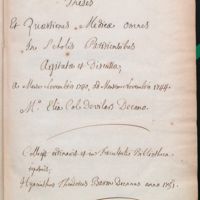 Theses
Et Quæstiones Medicæ omnes
In Scholis Parisiensibus
Agitatæ et Discussæ,
A Mense Novembri 1740, ad Mensem Novembrem 1744.
M.º Elia Col de Vilars Decano.
Collegit ordinavit et in Facultatis Bibliotheca
reposuit,
Hyacinthus Theodorus Baron Decanus anno 1751.